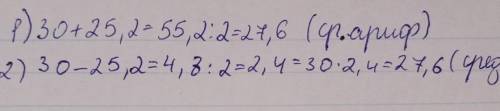 1) 30+25,2=55,2:2=27,6 (ср.ариф)
2) 30-25,2=4,8:2=2,4=30·2,4=27,6 (сред